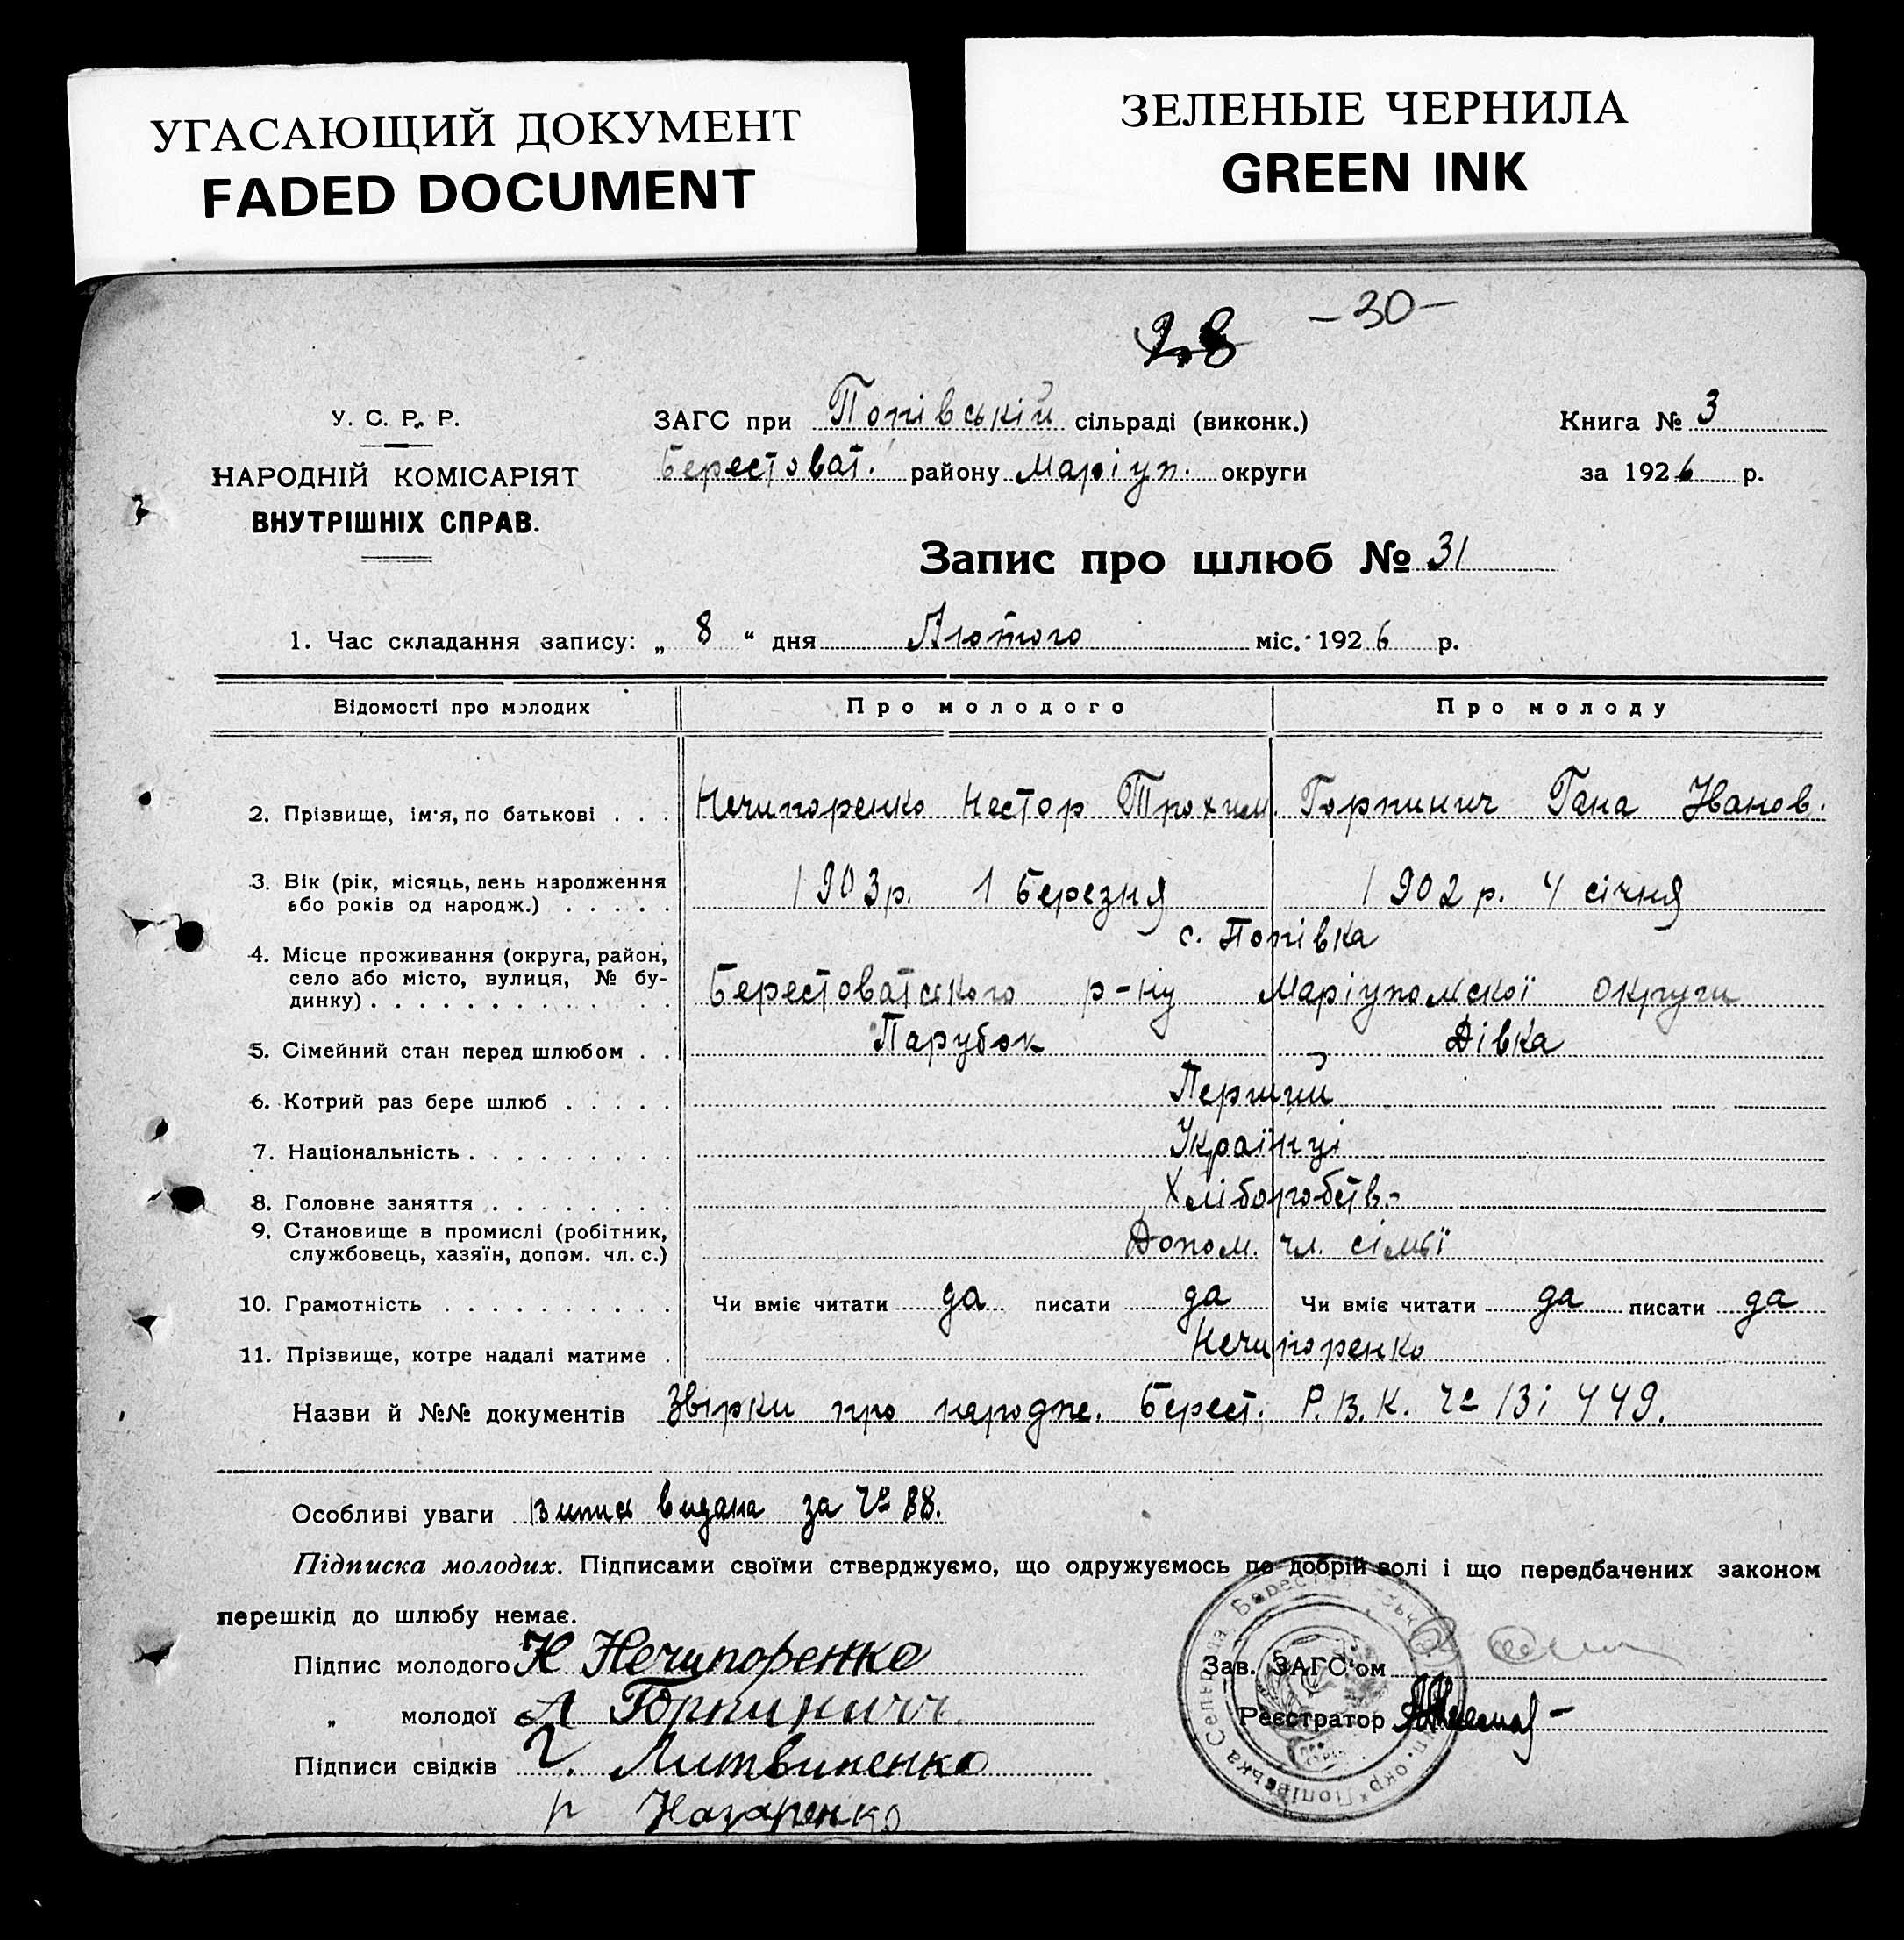 УГАСАЮЩИЙ ДОКУМЕНТ
FADED DOCUMENT
ЗЕЛЕНЫЕ ЧЕРНИЛА
GREEN INK
28
-30-
У. С. Р. Р.
НАРОДНІЙ КОМІСАРІЯТ
ВНУТРІШНІХ СПРАВ.
ЗАГС при Попівській сільраді (виконк.)
Берестоват. району Маріуп. округи
Книга № 3
за 1926 р.
Запис про шлюб № 31
1. Час складання запису: „ 8 “ дня Лютого міс. 1926 р.
Відомості про молодих Про молодого Про молоду
2. Прізвище, ім'я, по батькові . . . Нечипоренко Нестор Трохим. Горпинич Гана Іванов.
3. Вік (рік, місяць, день народження
або років од народж.) . . . . . 1903 р. 1 березня 1902 р. 4 січня
с. Попівка
4. Місце проживання (округа, район,
село або місто, вулиця, № бу-
динку) . . . . . . . . . . . . Берестоватського р-ну Маріупольскої округи
5. Сімейний стан перед шлюбом . . Парубок Дівка
6. Котрий раз бере шлюб . . . . . Перший
7. Національність . . . . . . . . . Українці
8. Головне заняття . . . . . . . . Хліборобств.
9. Становище в промислі (робітник,
службовець, хазяїн, допом. чл. с.) Допом. чл. сімьї
10. Грамотність . . . . . . . . . . Чи вміє читати да писати да Чи вміє читати да писати да
11. Прізвище, котре надалі матиме . Нечипоренко
Назви й №№ документів Звірки про народже. Берест. Р.В.К. Чо 13 і 449.
Особливі уваги Випис видана за Чо 88.
Підписка молодих. Підписами своїми стверджуємо, що одружуємось по добрій волі і що передбачених законом
перешкід до шлюбу немає.
Підпис молодого Н Нечипоренко
„ молодої А Горпиничъ
Підписи свідків Г. Литвиненко
Р Назаренко
Зав. ЗАГС'ом
Реєстратор
Попівська Сельрада